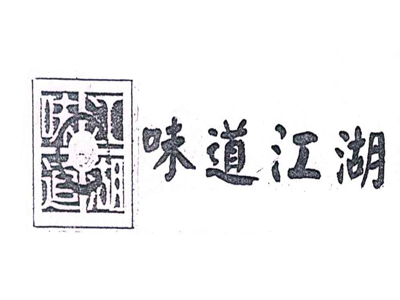 味道江湖
味道江湖